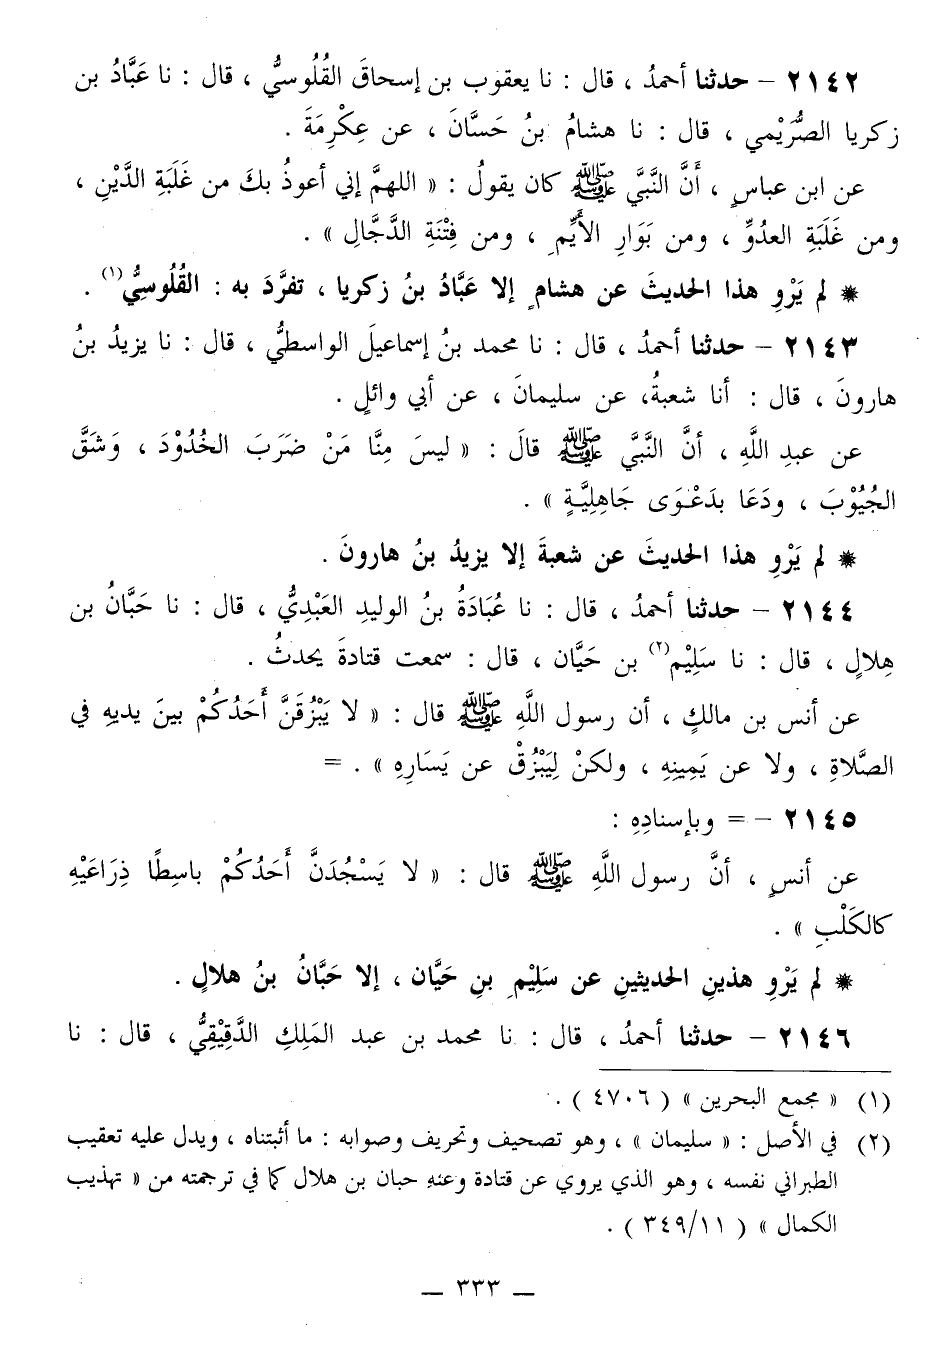 ٢١٤٢ – حدثنا أحمدُ ، قال : نا يعقوب بن إسحاقَ القُلُوسيُّ ، قال : نا عَبَّادُ بن
زكريا الصُّرَيْمي ، قال : نا هشامُ بنُ حَسَّانَ ، عن عِكْرِمَةَ .
عن ابن عباسٍ ، أَنَّ النَّبيَّ ﷺ كان يقولُ : « اللهمَّ إني أعوذُ بكَ من غَلَبَةِ الدَّيْنِ ،
ومن غَلَبَةِ العدُوِّ ، ومن بَوَارِ الأَيِّمِ ، ومن فِتْنَةِ الدَّجَّالِ » .
* لم يَرْوِ هذا الحديثَ عن هشامٍ إلا عَبَّادُ بنُ زكريا ، تفرَّدَ به : القُلُوسِيُّ(١) .
٢١٤٣ – حدثنا أحمدُ ، قال : نا محمد بنُ إسماعيلَ الواسطيُّ ، قال : نا يزيدُ بنُ
هارونَ ، قال : أنا شعبةُ، عن سليمانَ ، عن أبي وائلٍ .
عن عبدِ اللَّهِ ، أنَّ النَّبيَّ ﷺ قالَ : « ليسَ مِنَّا مَنْ ضَرَبَ الخُدُوْدَ ، وَشَقَّ
الجُيُوْبَ ، ودَعَا بدَعْوَى جَاهِلِيَّةٍ » .
* لم يَرْوِ هذا الحديثَ عن شعبةَ إلا يزيدُ بنُ هارونَ .
٢١٤٤ – حدثنا أحمدُ ، قال : نا عُبَادَةُ بنُ الوليدِ العَبْدِيُّ ، قال : نا حَبَّانُ بن
هِلالٍ ، قال : نا سَلِيْم(٢) بن حَيَّان ، قال : سمعت قتادةَ يحدثُ .
عن أنس بن مالكٍ ، أن رسول اللَّهِ ﷺ قال : « لا يَبْزُقَنَّ أَحَدُكُمْ بينَ يديهِ في
الصَّلاةِ ، ولا عن يَمِينِهِ ، ولكنْ لِيَبْزُقْ عن يَسَارِهِ » . =
٢١٤٥ – = وبإسنادِهِ :
عن أنسٍ ، أنَّ رسول اللَّهِ ﷺ قال : « لا يَسْجُدَنَّ أَحَدُكُمْ باسِطًا ذِرَاعَيْهِ
كالكَلْبِ » .
* لم يَرْوِ هذينِ الحديثينِ عن سَلِيْمِ بنِ حَيَّان ، إلا حَبَّانُ بنُ هلالٍ .
٢١٤٦ – حدثنا أحمدُ ، قال : نا محمد بن عبد المَلِكِ الدَّقِيْقِيُّ ، قال : نا
(١) « مجمع البحرين » ( ٤٧٠٦ ) .
(٢) في الأصل : « سليمان » ، وهو تصحيف وتحريف وصوابه : ما أثبتناه ، ويدل عليه تعقيب
الطبراني نفسه ، وهو الذي يروي عن قتادة وعنه حبان بن هلال كما في ترجمته من « تهذيب
الكمال » ( ٣٤٩/١١ ) .
– ٣٣٣ –